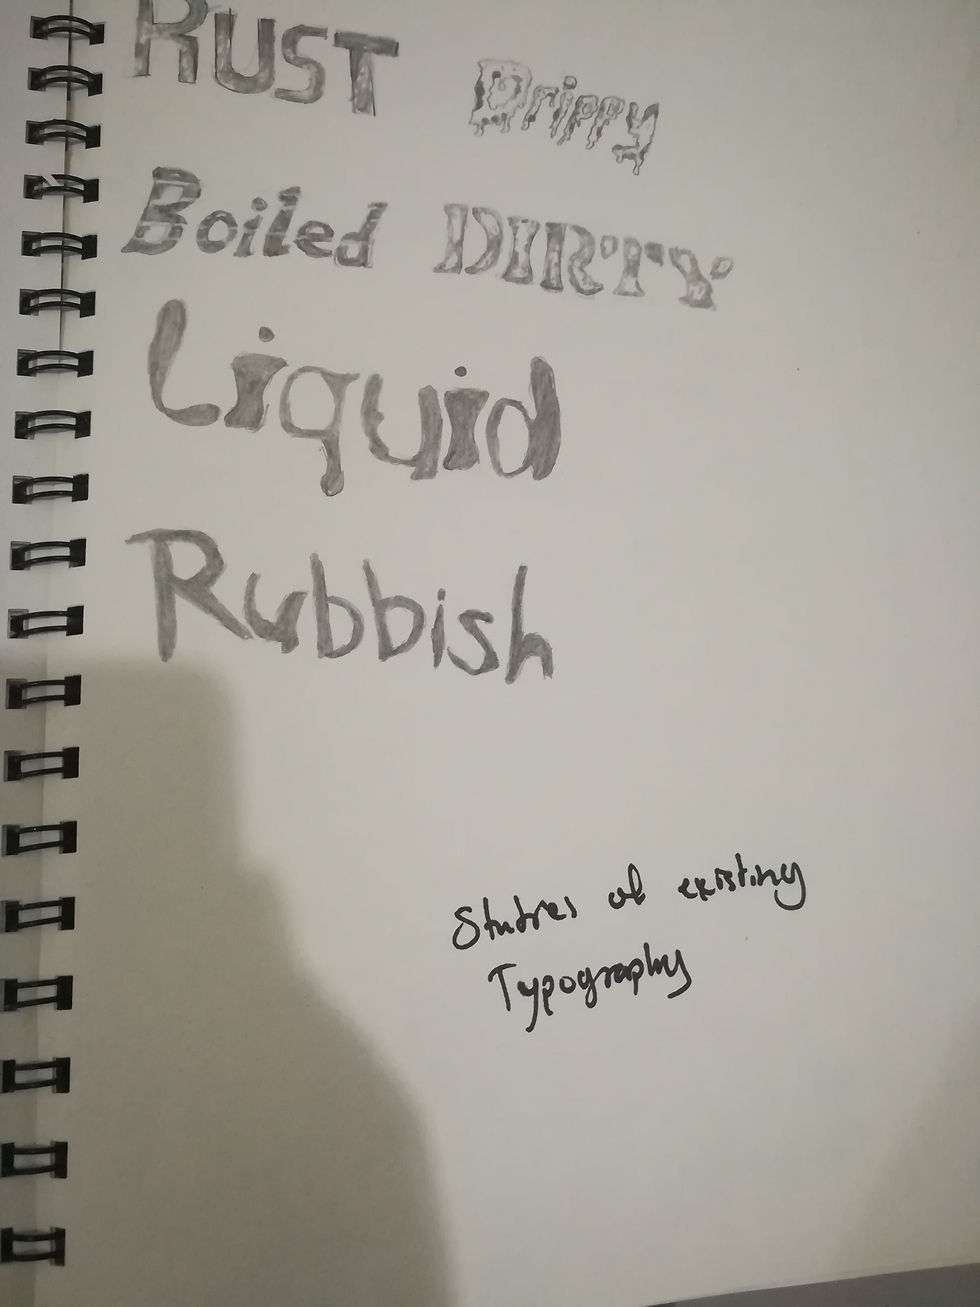 RUST Drippy
Boiled DIRTY
Liquid
Rubbish
Studies of existing
Typography